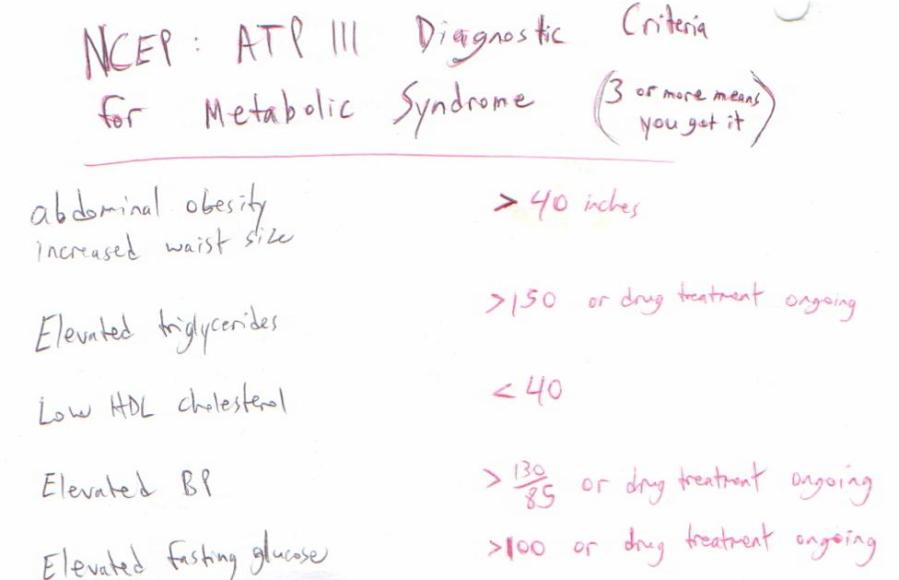 NCEP: ATP III Diagnostic Criteria
for Metabolic Syndrome (3 or more means
you get it)
abdominal obesity > 40 inches
increased waist size
Elevated triglycerides >150 or drug treatment ongoing
Low HDL cholesterol < 40
Elevated BP > 130/85 or drug treatment ongoing
Elevated fasting glucose >100 or drug treatment ongoing